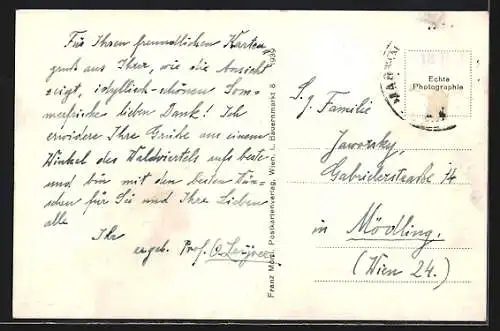 Für Ihren freundlichen Karten-
gruß aus Ihrer, wie die Ansicht
zeigt, idyllisch-schönen Som-
merfrische lieben Dank! Ich
erwidere Ihre Grüße aus einem
Winkel des Waldviertels aufs beste
und bin mit den besten Wün-
schen für Sie und Ihre Lieben
alle
Ihr
ergeb. Prof.
Franz Mörtl, Postkartenverlag, Wien, I., Bauernmarkt 8 1939
Echte
Photographie
S. g. Familie
Jaworsky,
Gabrielerstraße 14
in Mödling.
(Wien 24.)